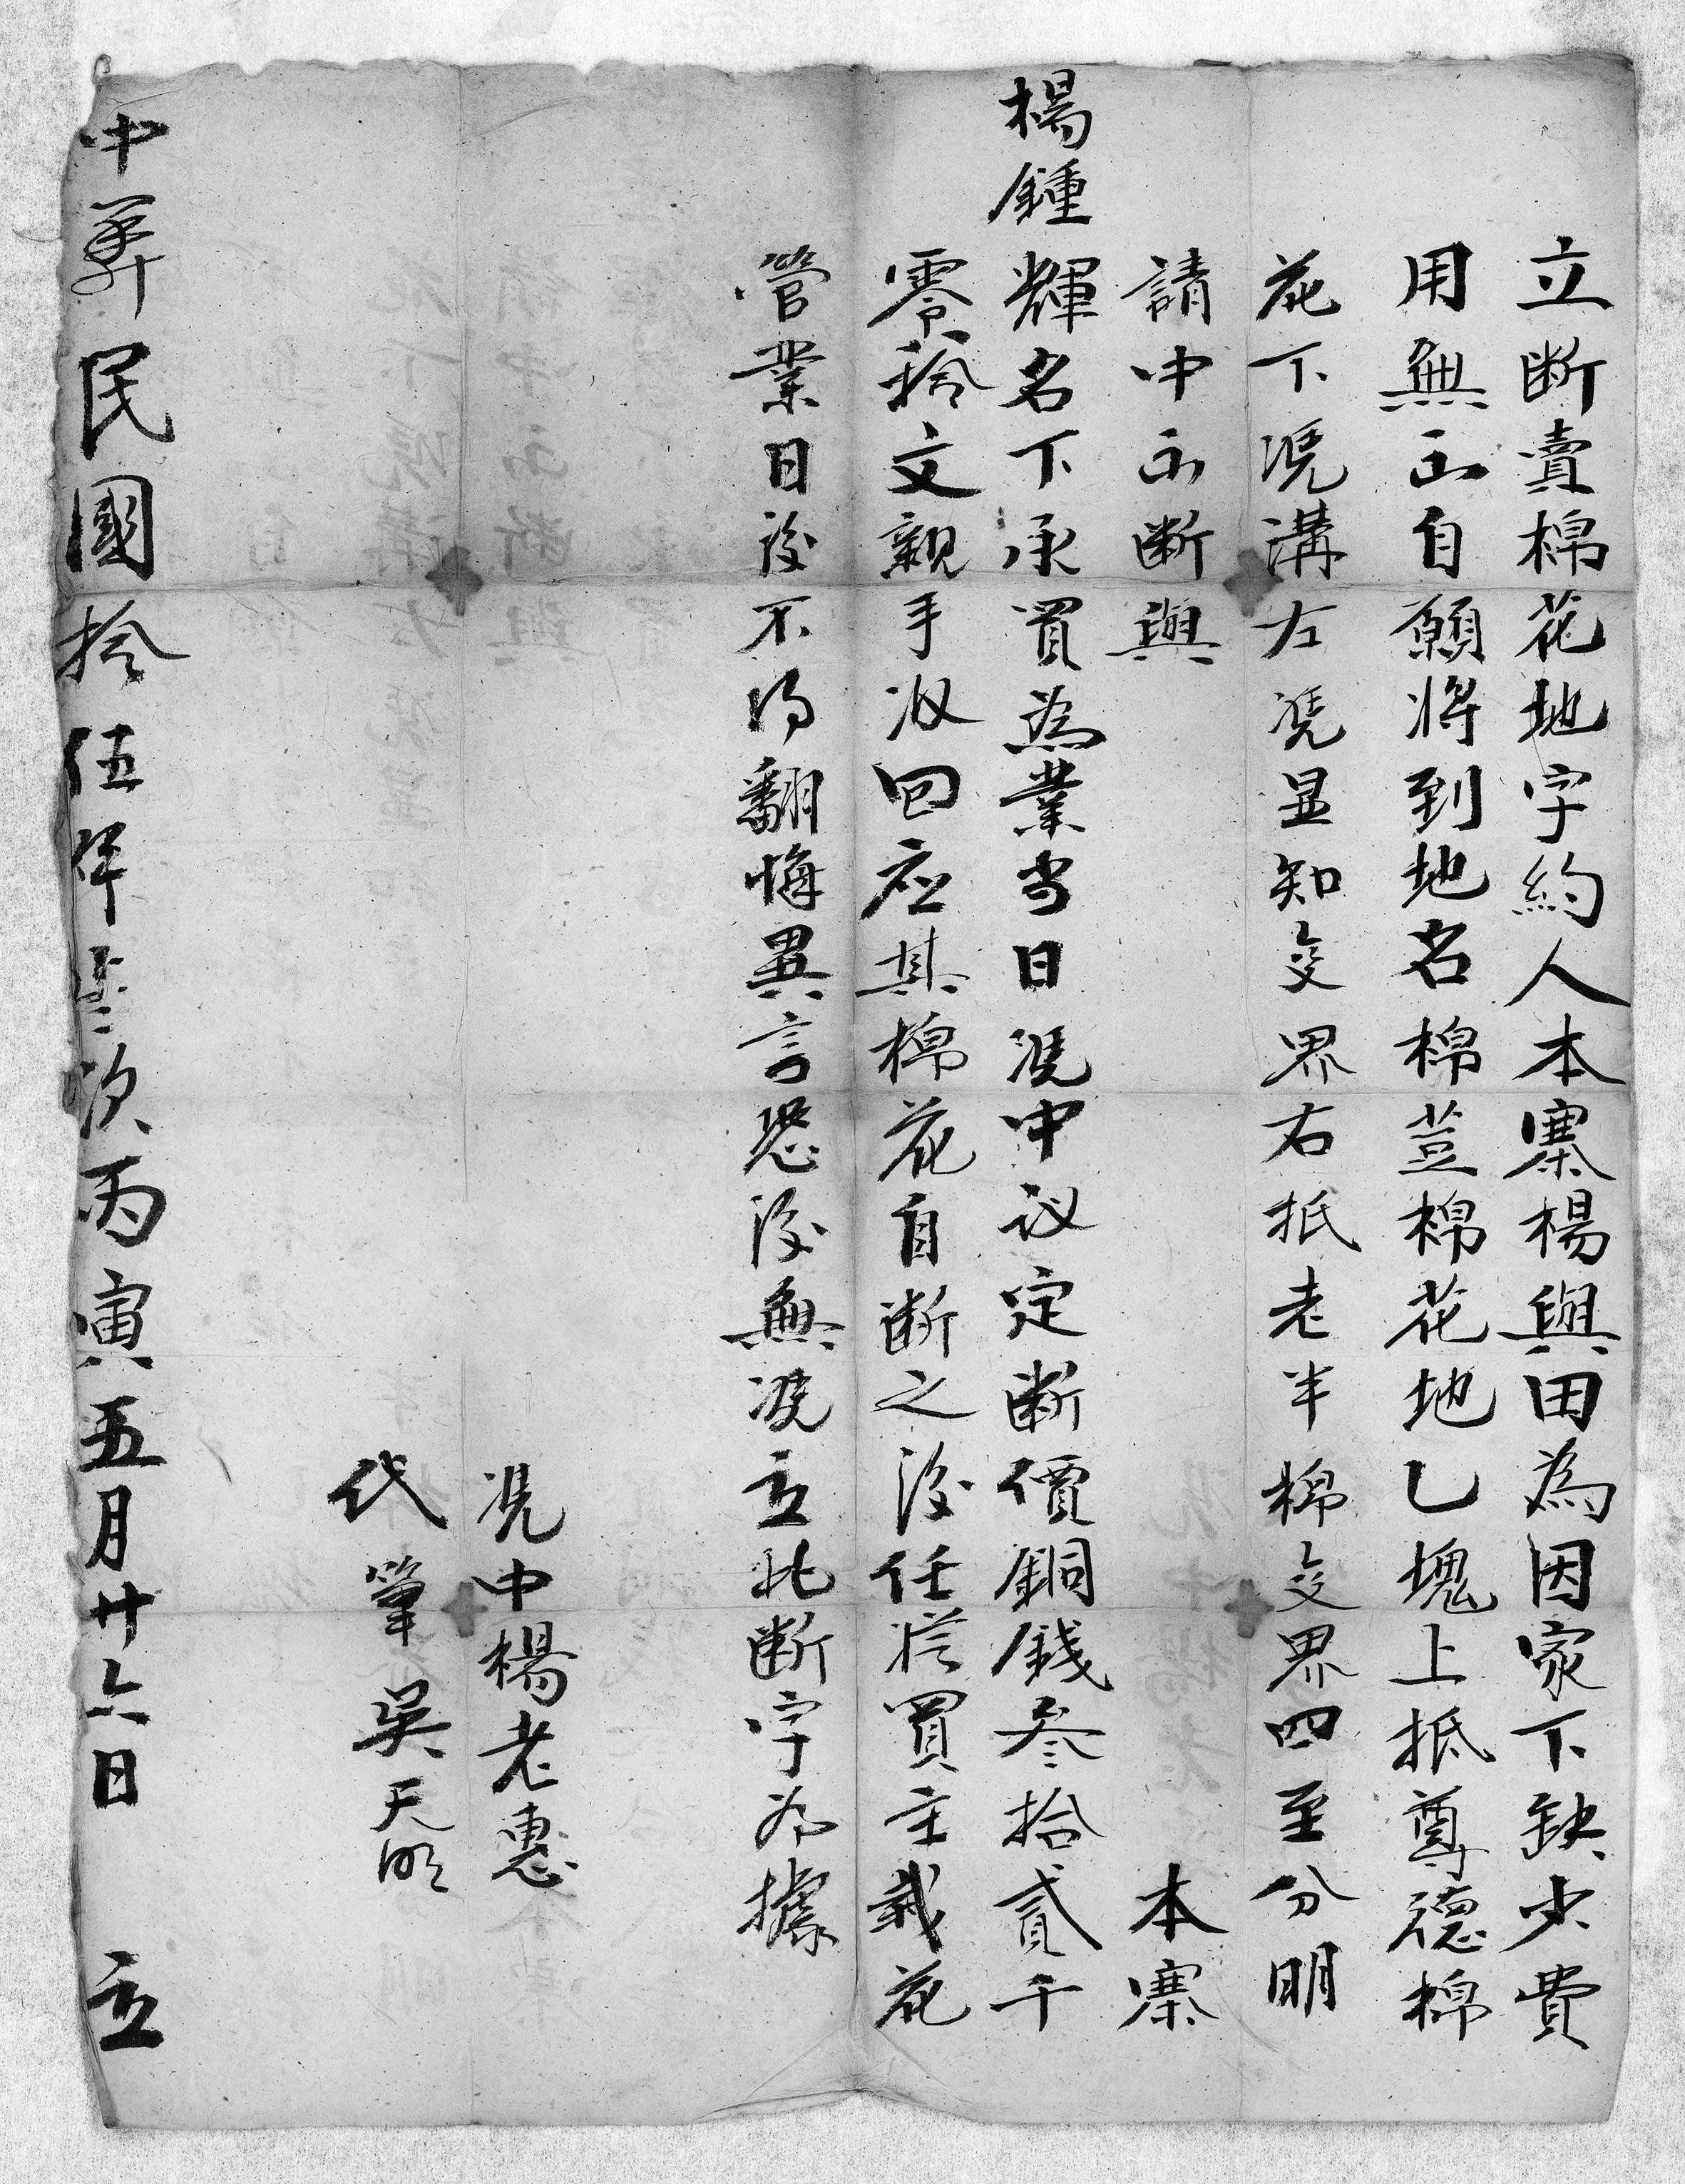 立断賣棉花地字約人本寨楊與田為因家下缺少費
用無出自願將到地名棉荳棉花地乙塊上抵尊德棉
花下凴溝左凴显知交界右抵老半棉交界四至分明
請中出断與 本寨
楊鍾輝名下承買為業当日凴中议定断價銅錢叁拾貳千
零拾文親手收回应其棉花自断之後任從買主栽花
管業日後不得翻悔異言恐後無凴立此断字为據
凴中楊老惠
代筆吳天明
中華民國拾伍年歲次丙寅五月廿六日 立